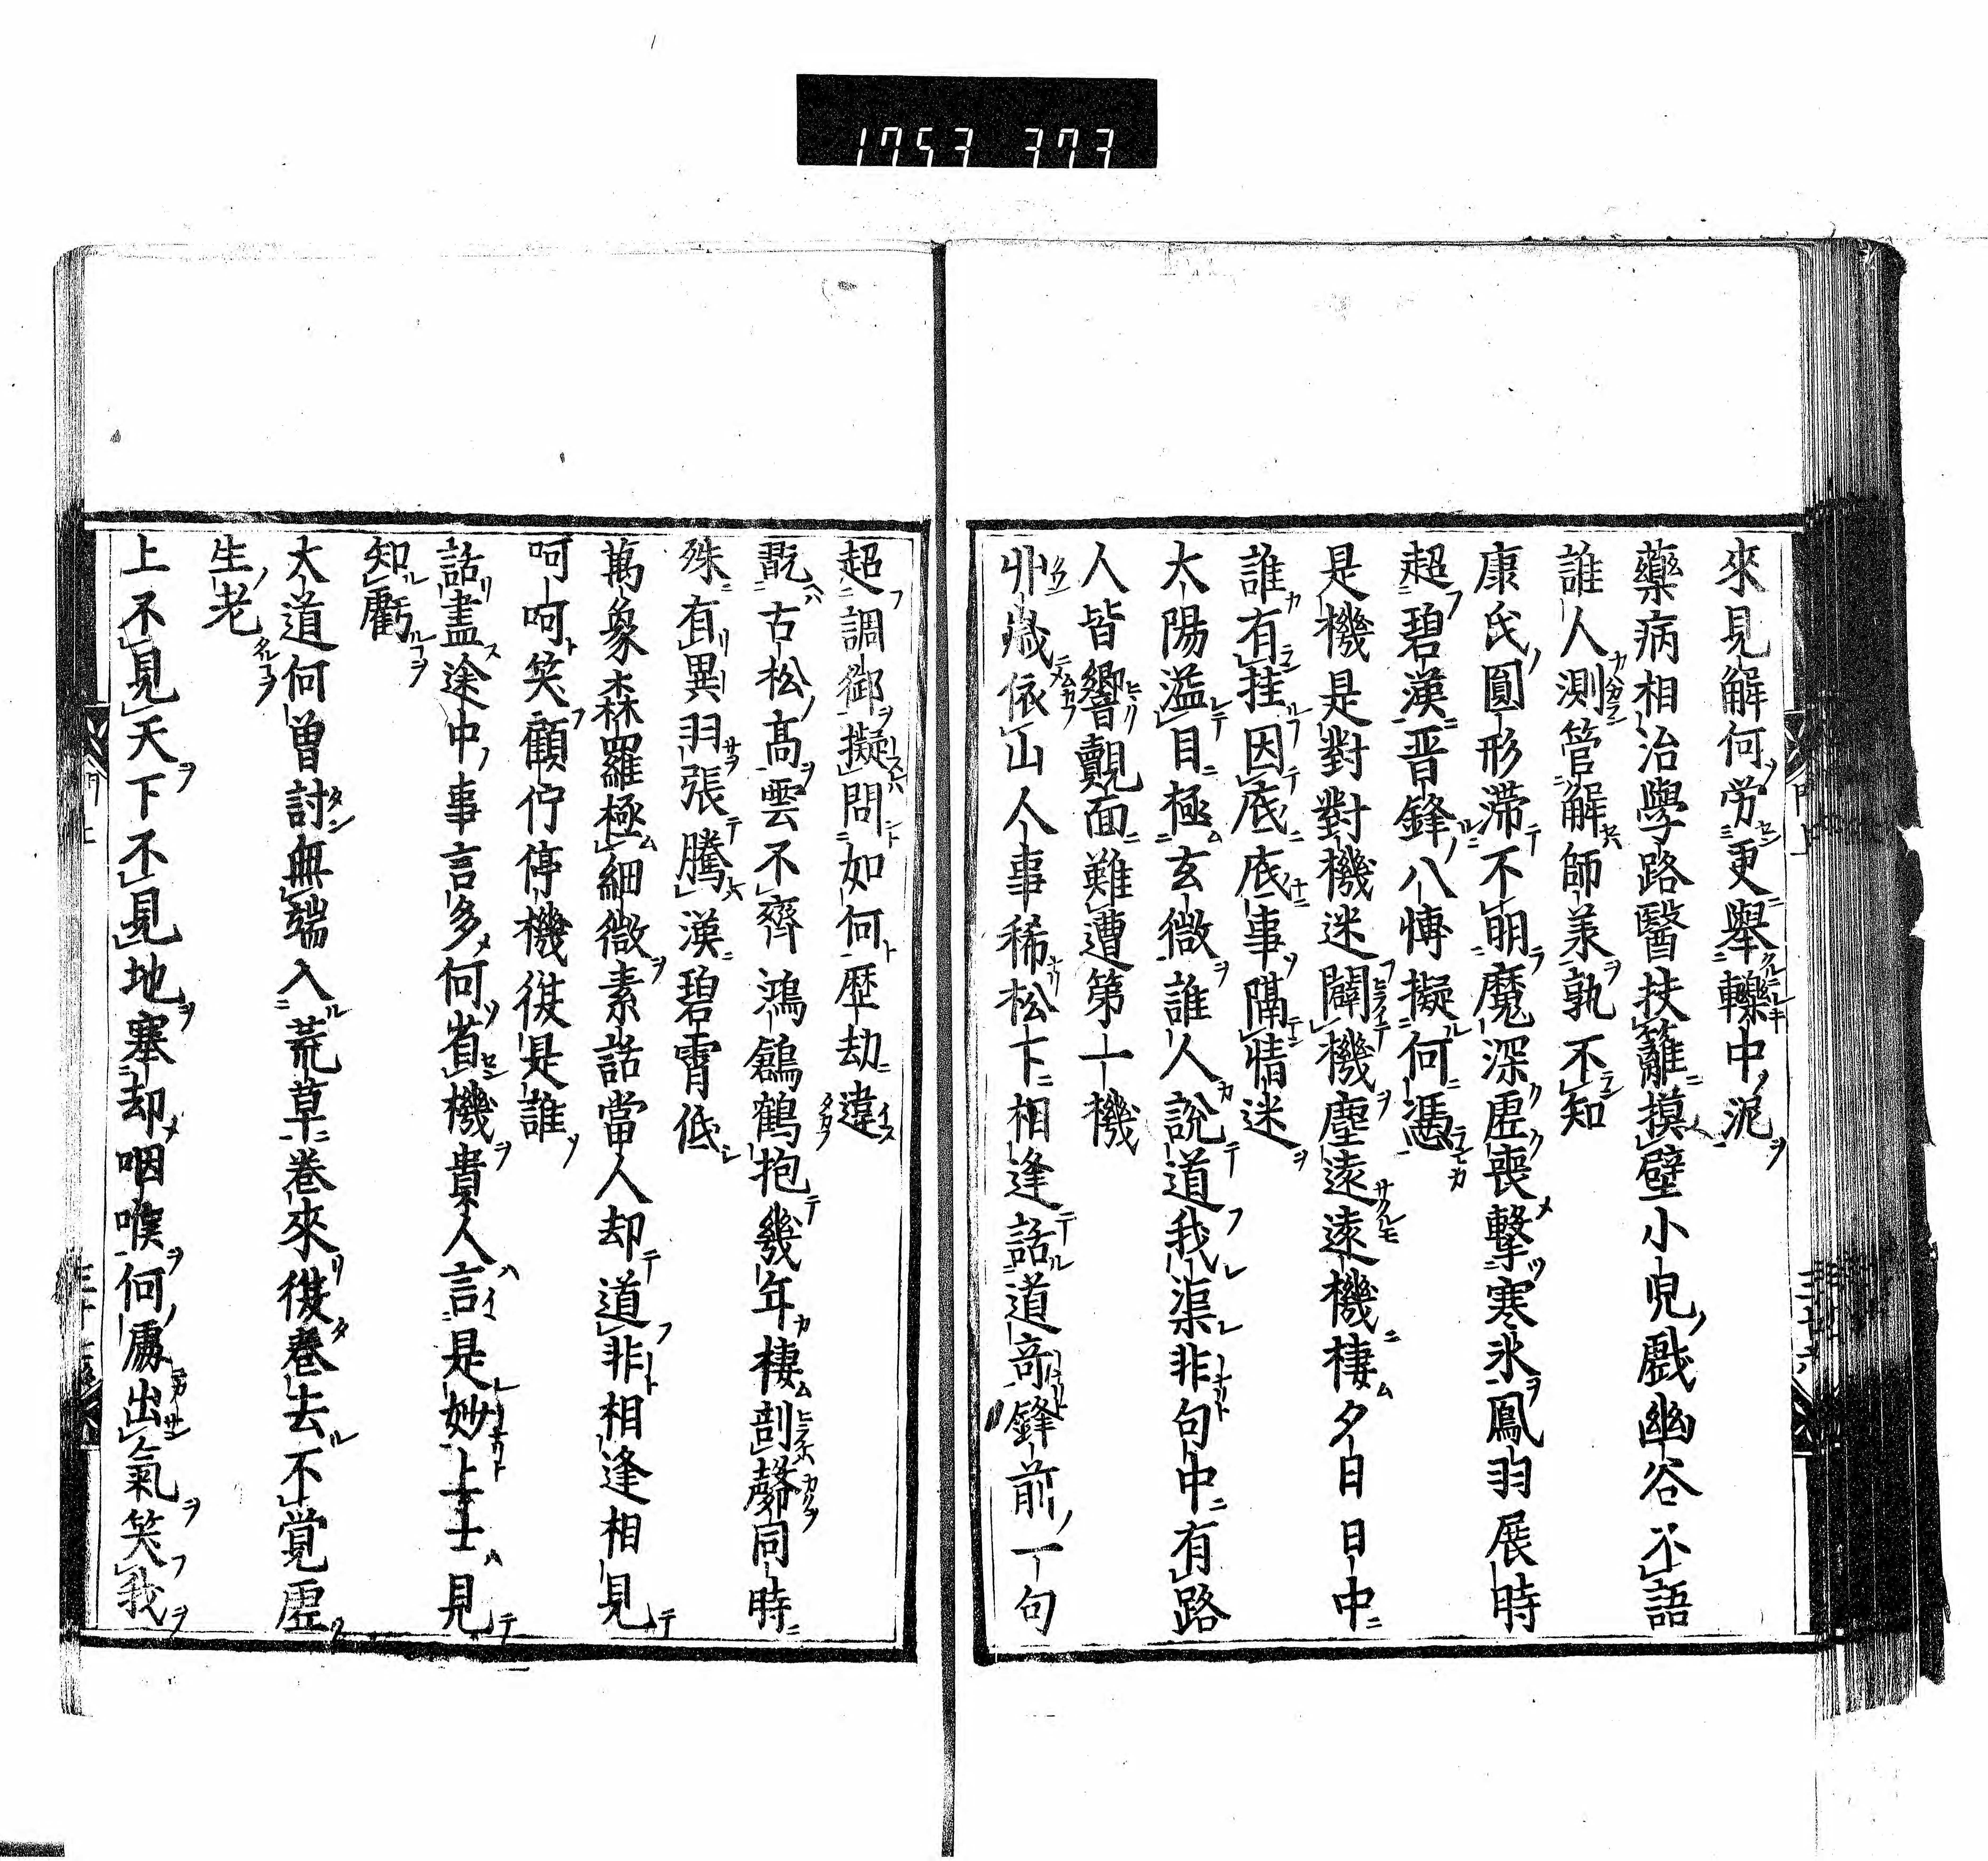 1753 373
來見解何労更擧轢中泥
藥病相治學路醫扶籬摸壁小児戲幽谷不語
誰人測管解師羕孰不知
康氏圓形滞不明魔深虚喪擊寒氷鳳羽展時
超碧漢晋鋒八愽擬何憑
是機是對對機迷闢機塵遠遠機棲夕日日中
誰有挂因底底事隔情迷
太陽溢目極玄微誰人説道我渠非句中有路
人皆響覿面難遭第一機
丱歳依山人事稀松下相逢話道竒鋒前一句
超調御擬問如何歴劫違
翫古松高雲不齊鴻鶴抱幾年棲剖㲉同時
殊有異羽張騰漢碧霄低
萬象森羅極細微素話當人却道非相逢相見
呵呵笑顧佇停機復是誰
話盡途中事言多何省機貴人言是妙上士見
知虧
大道何曽討無端入荒草卷來復卷去不覚虚
生老
上不見天下不見地塞却咽喉何處出氣笑我